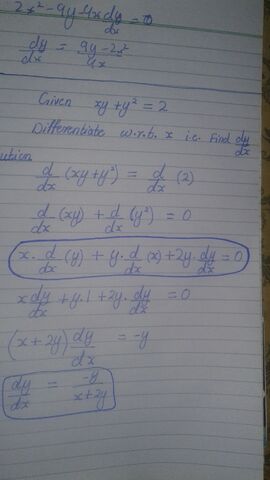 2x² - 9y - 4x dy/dx = 0
dy/dx = 9y - 2x²/4x
Given xy + y² = 2
Differentiate w.r.t. x i.e. Find dy/dx
ution
d/dx (xy + y²) = d/dx (2)
d/dx (xy) + d/dx (y²) = 0
x · d/dx (y) + y · d/dx (x) + 2y · dy/dx = 0
x dy/dx + y · 1 + 2y · dy/dx = 0
(x + 2y) dy/dx = -y
dy/dx = -y/x + 2y